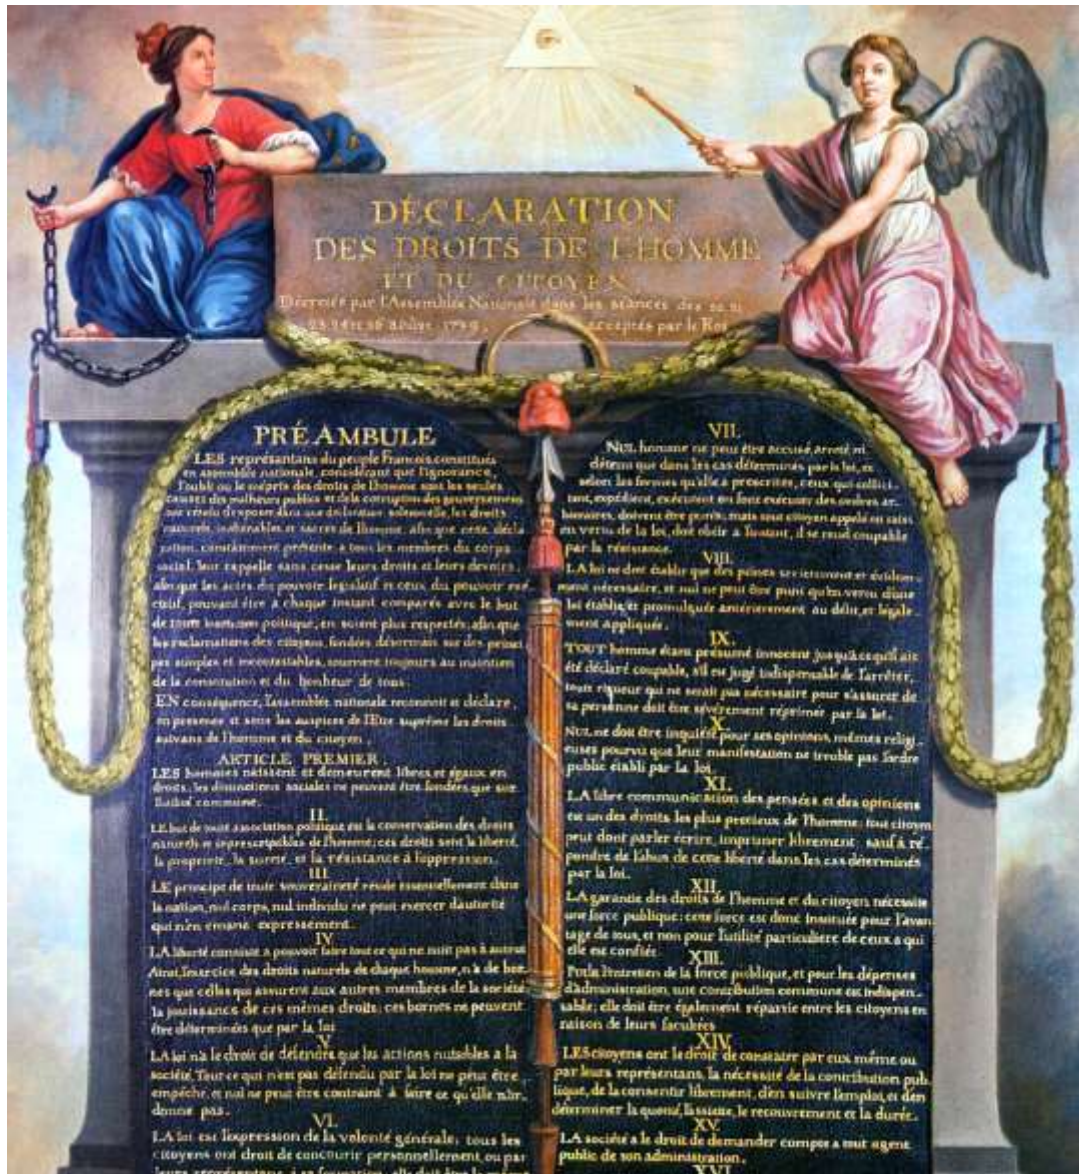 DÉCLARATION
DES DROITS DE L'HOMME
ET DU CITOYEN,
Décrétés par l'Assemblée Nationale dans les séances des 20. 21
23. 24 et 26 aôust 1789, acceptés par le Roi
PRÉAMBULE
LES représentans du peuple François, constitués
en assemblée nationale, considérant que l'ignorance,
l'oubli ou le mépris des droits de l'homme sont les seules
causes des malheurs publics et de la corruption des gouvernemens
ont résolu d'exposer dans une déclaration solemnelle, les droits
naturels, inaliénables et sacrés de l'homme, afin que cette décla
ration, constamment présente a tous les membres du corps
social, leur rappelle sans cesse leurs droits et leurs devoirs,
afin que les actes du pouvoir législatif et ceux du pouvoir exé
cutif, pouvant être à chaque instant comparés avec le but
de toute institution politique, en soient plus respectés; afin que
les reclamations des citoyens, fondées désormais sur des princi
pes simples et incontestables, tournent toujours au maintien
de la constitution et du bonheur de tous.
EN conséquence, l'assemblée nationale reconnoit et déclare
en presence et sous les auspices de l'Etre suprême les droits
suivans de l'homme et du citoyen.
ARTICLE PREMIER.
LES hommes naissent et demeurent libres et égaux en
droits. les distinctions sociales ne peuvent être fondées que sur
l'utilité commune.
II.
LE but de toute association politique est la conservation des droits
naturels et inprescriptibles de l'homme; ces droits sont la liberté,
la propriété, la sureté, et la résistance à l'oppression.
III.
LE principe de toute souveraineté réside essentiellement dans
la nation, nul corps, nul individu ne peut exercer d'autorité
qui n'en emane expressément.
IV.
LA liberté consiste a pouvoir faire tout ce qui ne nuit pas à autrui
Ainsi, l'exercice des droits naturels de chaque homme, n'a de bor-
nes que celles qui assurent aux autres membres de la société
la jouissance de ces mêmes droits; ces bornes ne peuvent
être déterminées que par la loi
V.
LA loi n'a le droit de défendre que les actions nuisibles a la
société. Tout ce qui n'est pas défendu par la loi ne peut être
empêché, et nul ne peut être contraint à faire ce qu'elle n'or-
donne pas.
VI.
LA loi est l'expression de la volonté générale; tous les
citoyens ont droit de concourir personnellement, ou par
leurs représentans, à sa formation; elle doit être la même
VII.
NUL homme ne peut être accusé, arreté, ni
détenu que dans les cas déterminés par la loi, et
selon les formes qu'elle a prescrites, ceux qui sollici-
tent, expédient, exécutent ou font exécuter des ordres ar-
bitraires, doivent être punis; mais tout citoyen appelé ou saisi
en vertu de la loi, doit obéir a l'instant, il se rend coupable
par la résistance.
VIII.
LA loi ne doit établir que des peines strictement et évidem-
ment nécessaire, et nul ne peut être puni qu'en vertu d'une
loi établie et promulguée antérierement au délit, et légale-
ment appliquée.
IX.
TOUT homme étant présumé innocent jusqu'à ce qu'il ait
été déclaré coupable, s'il est jugé indispensable de l'arrêter,
toute rigueur qui ne serait pas nécessaire pour s'assurer de
sa personne doit être sévèrement réprimée par la loi.
X.
NUL ne doit être inquiété pour ses opinions, mêmes religi-
euses pourvu que leur manifestation ne trouble pas l'ordre
public établi par la loi.
XI.
LA libre communication des pensées et des opinions
est un des droits les plus precieux de l'homme; tout citoyen
peut dont parler écrire, imprimer librement, sauf à ré-
pondre de l'abus de cette liberté dans les cas déterminés
par la loi.
XII.
LA garantie des droits de l'homme et du citoyen nécessite
une force publique; cette force est donc instituée pour l'avan-
tage de tous, et non pour l'utilité particulière de ceux a qui
elle est confiée.
XIII.
POUR l'entretien de la force publique, et pour les dépenses
d'administration, une contribution commune est indispen-
sable; elle doit être également répartie entre les citoyens en
raison de leurs facultées
XIV.
LES citoyens ont le droit de constater par eux même ou
par leurs représentans, la nécessité de la contribution pub-
lique, de la consentir librement, d'en suivre l'emploi, et d'en
déterminer la quotité, l'assiette, le recouvrement et la durée.
XV.
LA société a le droit de demander compte a tout agent
public de son administration.
XVI.